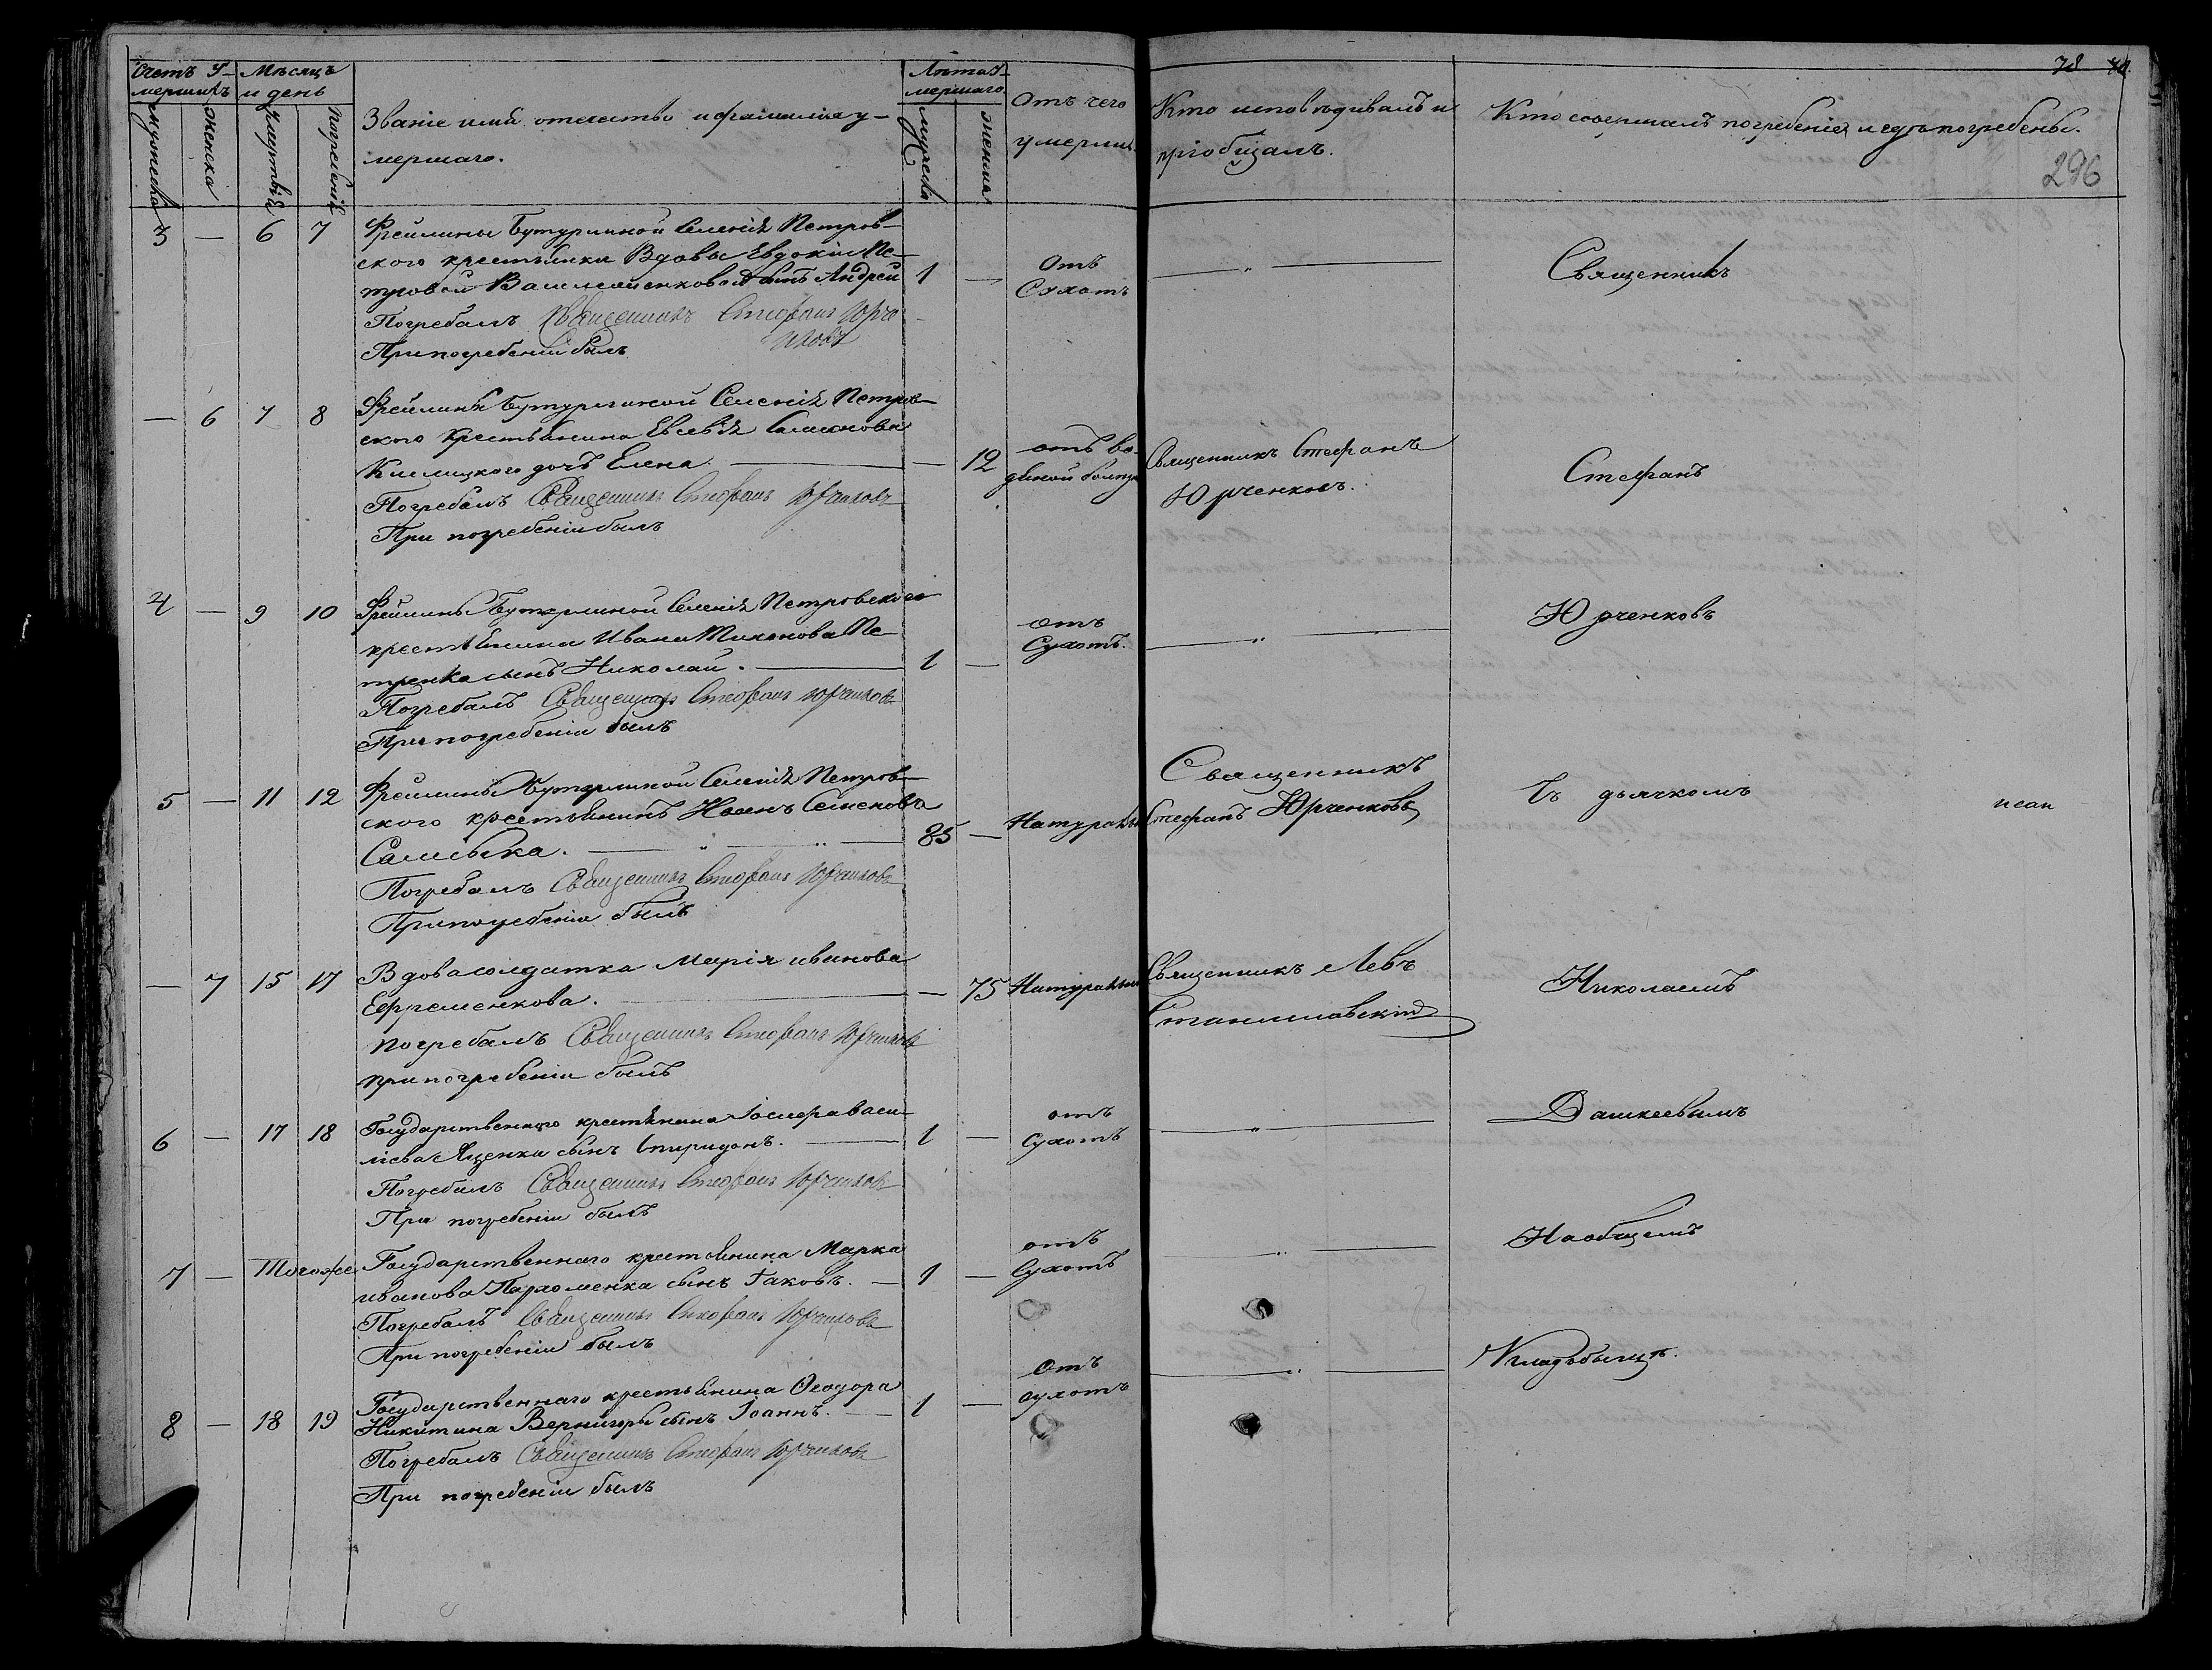 78
296
Счетъ У-
мершихъ
Мѣсяцъ
и день
Званіе имя отечество и фамилія у-
мершаго.
Лѣта у-
мершаго
Отъ чего
умерли.
Кто исповѣдивалъ и
пріобщалъ.
Кто совершалъ погребеніе и гдѣ погребены.
мужеска
женска
смерти
погребенія
мужеска
женска
3 — 6 7 Фрейлины Бутурлиной Селенія Петров-
ского крестьянки Вдовы Евдокіи Пе-
тровой сынъ Андрей 1 —
Отъ
Сухотъ
Погребалъ Священникъ Стефанъ Юрче
нковъ
При погребеніи былъ
— 6 7 8 Фрейлины Бутурлиной Селенія Петров-
ского Крестьянина Евсевія Симонова
Кислицкого дочь Елена — 12
отъ во-
дяной
Священникъ Стефанъ
Юрченковъ.
Погребалъ Священникъ Стефанъ Юрченковъ
При погребеніи былъ
4 — 9 10 Фрейлины Бутурлиной Селенія Петровского
крестьянина Ивана Тихонова Пе-
тренка сынъ Николай. 1 —
отъ
Сухотъ.
Погребалъ Священникъ Стефанъ Юрченковъ
При погребеніи былъ
5 — 11 12 Фрейлины Бутурлиной Селенія Петров-
ского крестьянинъ Семенова
85 —
Священникъ
Стефанъ Юрченковъ
Погребалъ Священникъ Стефанъ Юрченковъ
При погребеніи былъ
— 7 15 17 Вдова солдатка Марія иванова
Ефременкова. — 75
Священникъ Левъ
Станиславскій
погребалъ Священникъ Стефанъ Юрченковъ
при погребеніи былъ
6 — 17 18 Государственного крестьянина Іосифа васи-
ліева Яценка сынъ Спиридонъ. 1 —
отъ
Сухотъ
Погребалъ Священникъ Стефанъ Юрченковъ
При погребеніи былъ
7 — Тогоже Государственнаго крестьянина Марка
иванова Пархоменка сынъ Іаковъ. 1 —
отъ
Сухотъ
Погребалъ Священникъ Стефанъ Юрченковъ
При погребеніи былъ
8 — 18 19 Государственнаго крестьянина Ѳеодора
Никитина Вернигоры сынъ Іоаннъ. 1 —
Отъ
сухотъ
Погребалъ Священникъ Стефанъ Юрченковъ
При погребеніи былъ
Священникъ
Стефанъ
Юрченковъ
Съ дьячкомъ
Николаемъ
Дашкеевымъ
На общемъ
Кладъбыщѣ.